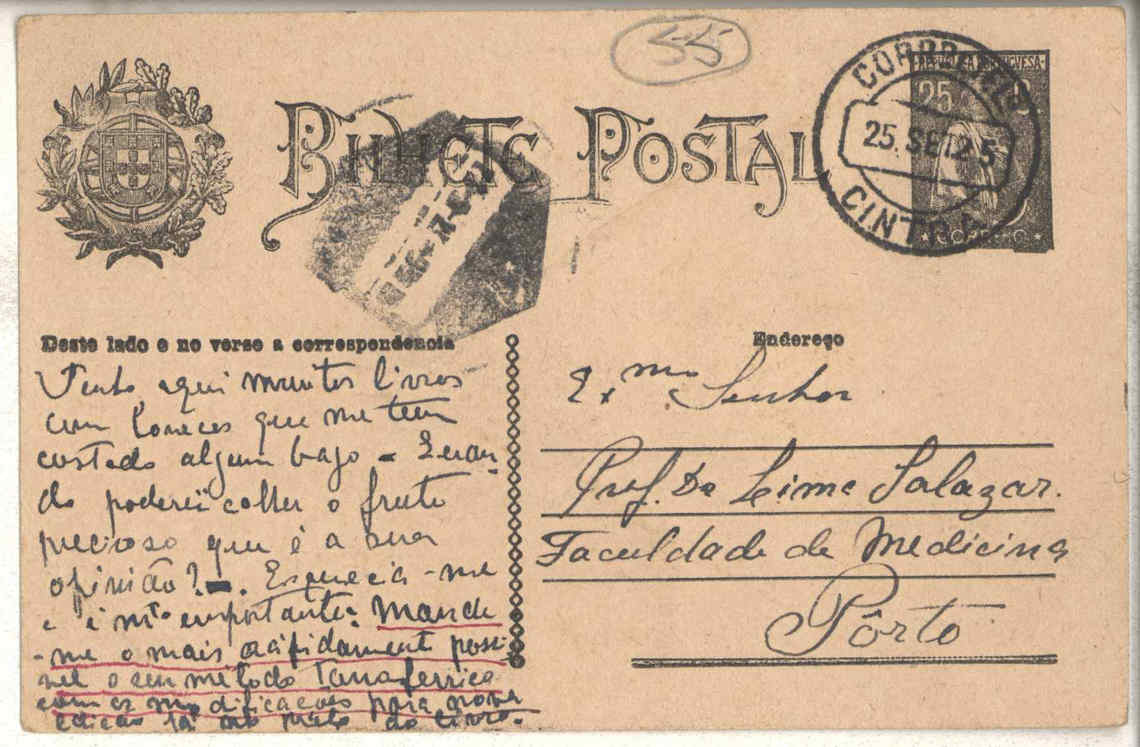 55
BILHETE POSTAL
CORREOS
25. SET 25
CINTRA
REPUBLICA PORTUGUESA
25 C
CORREIO
Deste lado e no verso a correspondencia
Endereço
Tenho aqui muitos livros
com que me tem
costado algum bago - Quan-
do poderei colher o fructo
precioso que é a sua
opinião? -. Esquecia-me
e é mto importante: Mande
-me o mais rápidamente possi-
vel o seu método
com as modificações para nova
edição já no do livro.
Exmo Senhor
Prof. Dr Lima Salazar.
Faculdade de Medicina
Pôrto